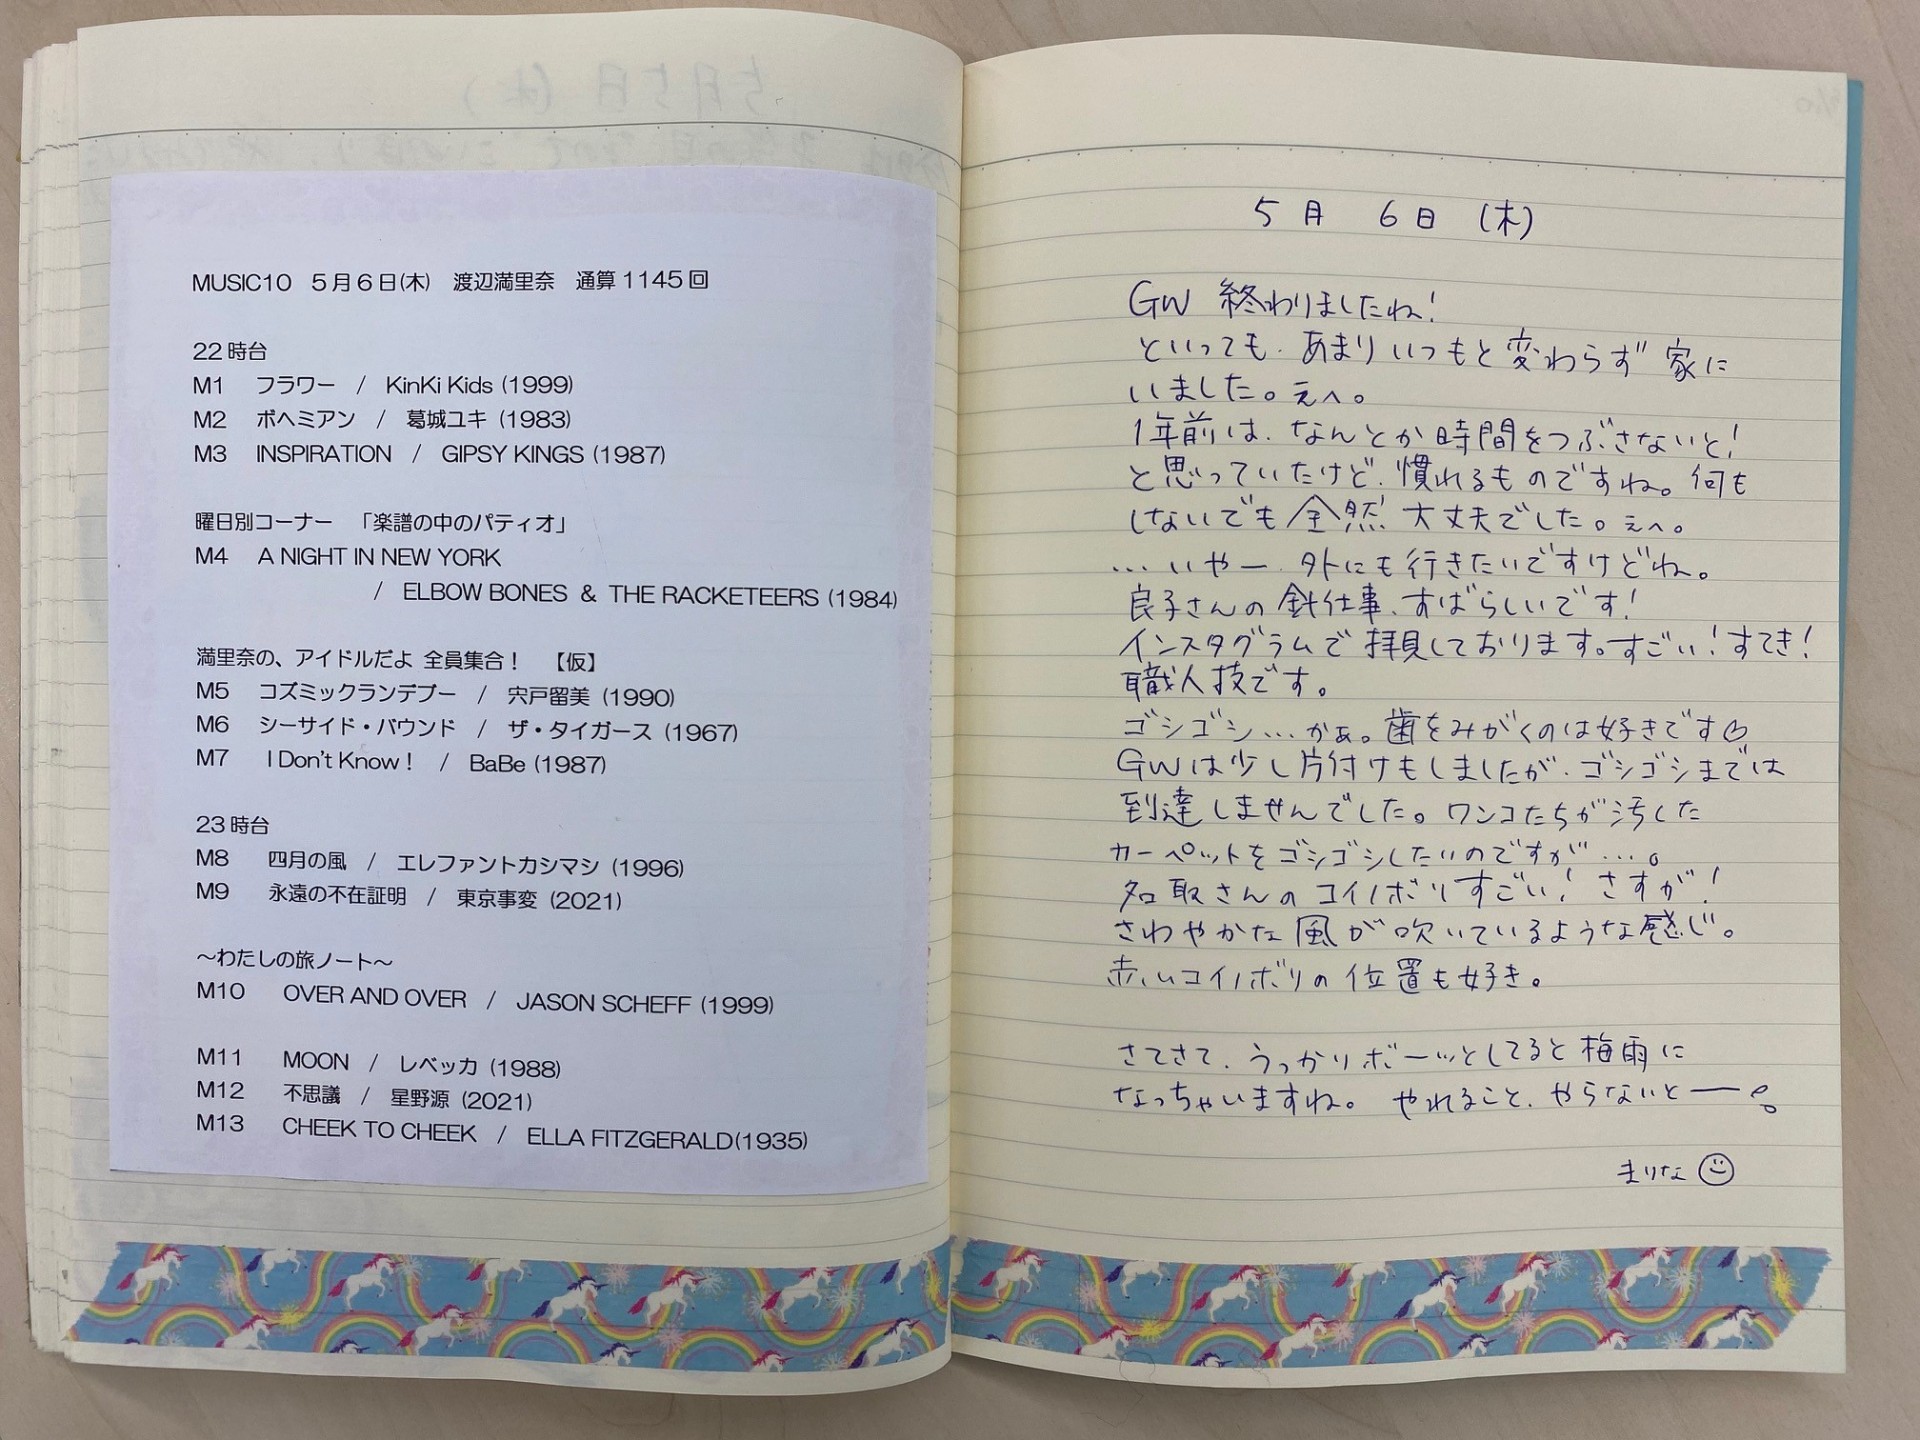 MUSIC10 5月6日(木) 渡辺満里奈 通算1145回
22時台
M1 フラワー / KinKi Kids (1999)
M2 ボヘミアン / 葛城ユキ (1983)
M3 INSPIRATION / GIPSY KINGS (1987)
曜日別コーナー 「楽譜の中のパティオ」
M4 A NIGHT IN NEW YORK
/ ELBOW BONES & THE RACKETEERS (1984)
満里奈の、アイドルだよ 全員集合！ 【仮】
M5 コズミックランデブー / 宍戸留美 (1990)
M6 シーサイド・バウンド / ザ・タイガース (1967)
M7 I Don't Know！ / BaBe (1987)
23時台
M8 四月の風 / エレファントカシマシ (1996)
M9 永遠の不在証明 / 東京事変 (2021)
～わたしの旅ノート～
M10 OVER AND OVER / JASON SCHEFF (1999)
M11 MOON / レベッカ (1988)
M12 不思議 / 星野源 (2021)
M13 CHEEK TO CHEEK / ELLA FITZGERALD(1935)
5月 6日 (木)
GW 終わりましたね！
といっても、あまりいつもと変わらず 家に
いました。えへ。
1年前は、なんとか時間をつぶさないと！
と思っていたけど、慣れるものですね。何も
しないでも全然大丈夫でした。えへ。
…いやー、外にも行きたいですけどね。
良子さんの針仕事、すばらしいです！
インスタグラムで拝見しております。すごい！すてき！
職人技です。
ゴシゴシ…かぁ。歯をみがくのは好きです♡
GWは少し片付けもしましたが、ゴシゴシまでは
到達しませんでした。ワンコたちが汚した
カーペットをゴシゴシしたいのですが…。
名取さんのコイノボリすごい！さすが！
さわやかな風が吹いているような感じ。
赤いコイノボリの位置も好き。
さてさて、うっかりボーッとしてると梅雨に
なっちゃいますね。やれること、やらないとー。
まりな